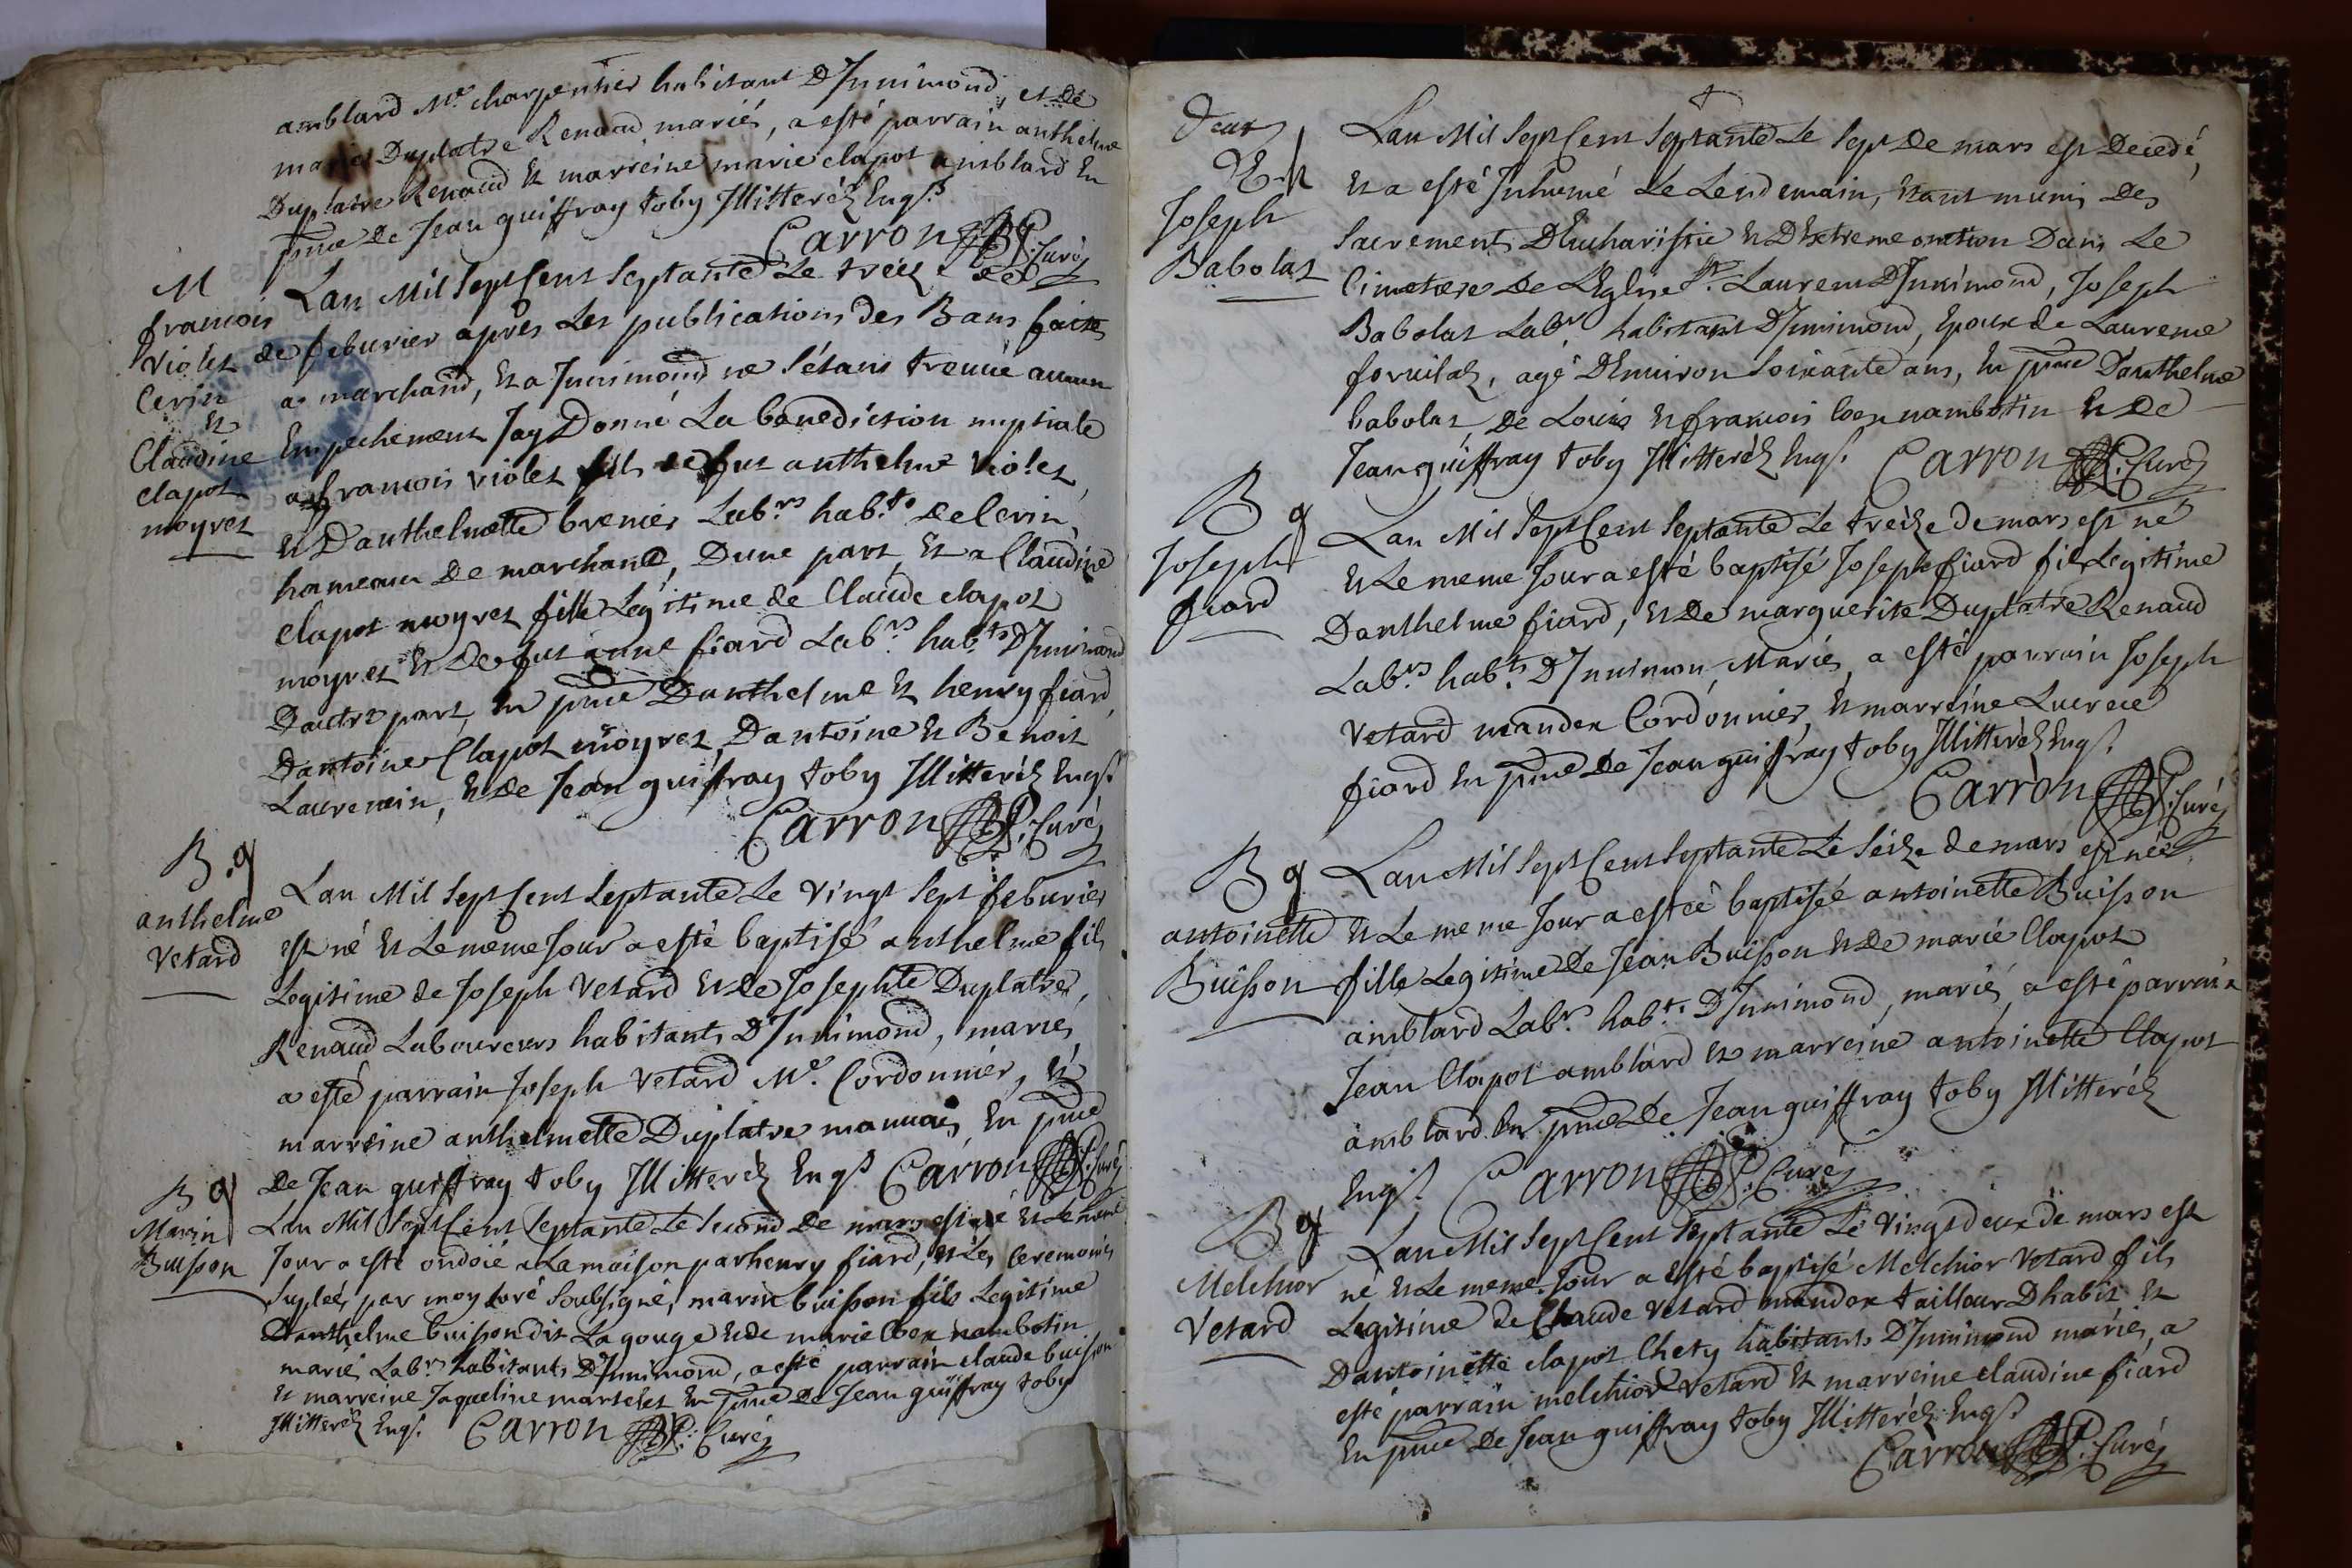 amblard Me. charpentier habitant D'Innimond, et de
marie Duplatre Renaud mariés, a esté parrain anthelme
Duplatre Renaud et marreine marie clapot amblard En
pnce de Jean guiffray toby Illitteréz Enqs.
Carron Curé
M
francois
Violet
Cerin
et
Claudine
clapot
moyret
Lan Mil Sept Cent Septante Le treiz de
de feburier apres Les publications des Bans faites
a marchand, et a Innimond ne s'étant treuvé aucun
Empechement Jay Donné La benediction nuptiale
a francois violet fils de fut anthelme Violet,
et Danthelmette brenier Labrs. habts. de Cerin,
hameau De marchand, Dune part, et a Claudine
Clapot moyret fille Legitime de Claude clapot
moyret et De fut anne fiard Labrs. habts. D'Innimond
Dautre part, en pnce Danthelme et henry fiard,
Dantoine Clapot moyret, Dantoine et Benoit
Laurencin, et de Jean guiffray toby Illitteréz Enqs.
Carron Curé
B. g
anthelme
Vetard
Lan Mil Sept Cent Septante Le Vingt Sept feburier
est né et Le meme Jour a esté baptisé anthelme fils
Legitime de Joseph Vetard et de Josephte Duplatre,
Renaud Laboureurs habitants D'Innimond, mariés,
a esté parrain Joseph Vetard Me. Cordonnier, et
marreine anthelmette Duplatre mauvais, En pnce
De Jean guiffray toby Illitteréz Enqs. Carron Curé
B g
Marin
Buisson
Lan Mil Sept Cent Septante Le Second de mars est né et Le meme
Jour a esté ondoié a La maison par henry fiard, et Les Ceremonies
Supleés par moy Curé Soubsigné, marin buisson fils Legitime
Danthelme buisson dit La gouge et de marie Coex nambotin
mariés Labrs. habitants D'Innimond, a esté parrain claude buisson
et marreine Jaqueline martelet En pnce de Jean guiffray toby
Illitteréz Enqs. Carron Curé
Joseph
Babolat
Lan Mil Sept Cent Septante Le Sept De mars est Decedé,
et a esté Inhumé Le Lendemain, étant munis Des
Sacrements D'Eucharistie et D'Extreme onction Dans Le
Cimetiere De L'Eglise St. Laurent D'Innimond, Joseph
Babolat Labr. habitant D'Innimond, Epoux de Laurence
forvilaz, agé D'Environ Soixante ans, En pnce Danthelme
babolat, De Louis et francois Coex nambotin et De
Jean guiffray toby Illitteréz Enqs. Carron Curé
B g
Joseph
fiard
Lan Mil Sept Cent Septante Le treize de mars est né
et Le meme Jour a esté baptisé Joseph fiard fils Legitime
Danthelme fiard, et De marguerite Duplatre Renaud
Labrs. habts. D'Innimon, Mariés, a esté parrain Joseph
Vetard mandex Cordonnier, et marreine Lucrece
fiard En pnce de Jean guiffray toby Illitteréz Enqs.
Carron Curé
B g
antoinette
Buisson
Lan Mil Sept Cent Septante Le Séize de mars est née
et Le meme Jour a esteé baptisée antoinette Buisson
fille Legitime de Jean Buisson et De marie Clapot
amblard Labrs. habts. D'Innimond, mariés, a esté parrain
Jean Clapot amblard et marreine antoinette Clapot
amblard En pnce De Jean guiffray toby Illitteréz
Enqs. Carron Curé
B g
Melchior
Vetard
Lan Mil Sept Cent Septante Le Vingt deux de mars est
né et Le meme Jour a esté baptisé Melchior Vetard fils
Legitime de Claude Vetard mandex tailleur Dhabit et
Dantoinette clapot Chety habitants D'Innimond mariés, a
esté parrain melchior Vetard et marreine claudine fiard
En pnce De Jean guiffray toby Illitteréz Enqs.
Carron Curé